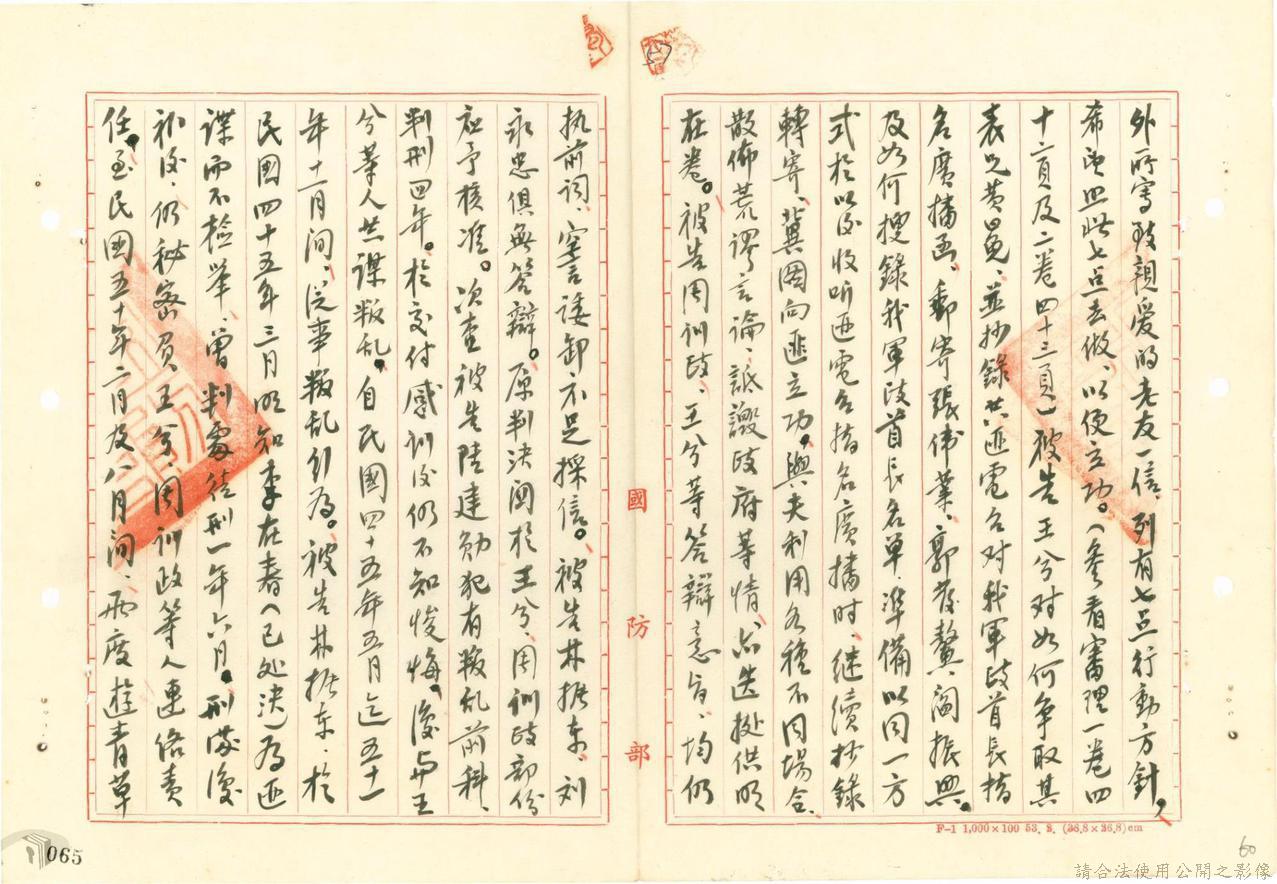 外所寫致親爱的老友一信、列有七点行動方針，
希望照此七点去做、以便立功。（參看審理一卷四
十六頁及二卷四十三頁）被告王兮对如何争取其
表兄黃勇、並抄錄共匪電台对我軍政首長指
名廣播函、郵寄張偉業、郭蔭鰲、閻振興。
及如何搜錄我軍政首長名单、準備以同一方
式於以後收听匪電台指名廣播时、继續抄錄
轉寄、冀圖向匪立功，與夫利用各種不同場合、
散佈荒謬言論、詆譭政府等情、亦迭據供明
在卷。被告周训政、王兮等答辯意旨、均仍
执前词、空言諉卸不足採信。被告林振东、刘
永忠俱無答辯。原判決関於王兮、周训政部份
应予核准。次查被告陸建勋犯有叛乱前科、
判刑四年。於交付感训後仍不知悛悔，復与王
兮等人共謀叛乱，自民國四十五年五月迄五十一
年十一月间、從事叛乱行為。被告林振东、於
民國四十五年三月明知李在春（已处決）為匪
諜而不检举、曾判處徒刑一年六月，刑滿後
初後、仍秘密頁王兮、周训政等人連络責
任，至民國五十年六月及八月间、兩度遊青草
國防部
F-1 1,000×100 53. 2. (36.8×26.8)cm
065
60
請合法使用公開之影像